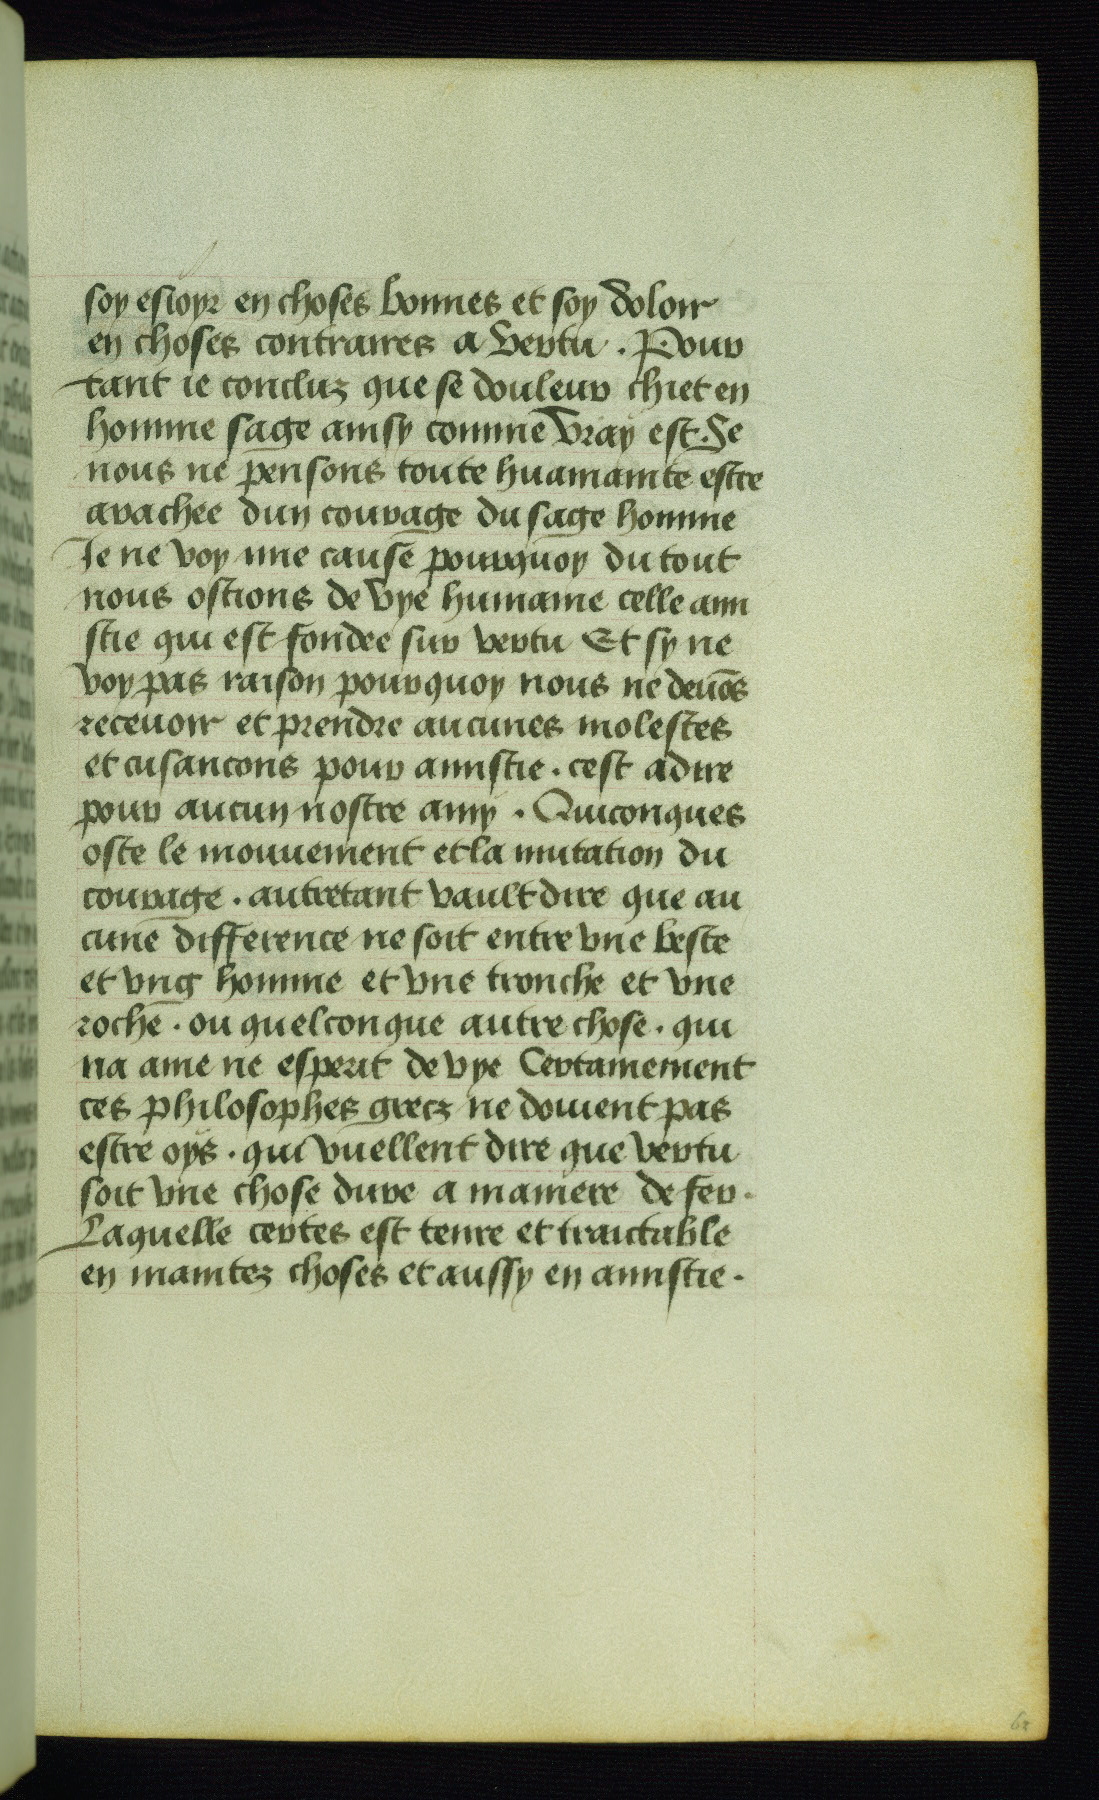 soy esioyr en choses bonnes et soy doloir
en choses contraires a vertu . Pour
tant ie concluz que se douleur chiet en
homme sage ainsy comme vray est . Se
nous ne pensons toute huamainte estre
arachee dun courage du sage homme
Je ne voy nne cause pourquoy du tout
nous ostions de vye humaine celle ami
stie qui est fondee sur vertu Et sy ne
voy pas raison pourquoy nous ne deuõs
receuoir et prendre aucunes molestes
et cusancons pour amistie . cest adire
pour aucun nostre amy . Quiconques
oste le mouuement et la mutation du
courage . autretant vault dire que au
cune difference ne soit entre vne beste
et vng homme et vne tronche et vne
roche . ou quelconque autre chose . qui
na ame ne esperit de vye Certainement
ces philosophes grecz ne doiuent pas
estre oys . qui vuellent dire que vertu
soit vne chose dure a maniere de fer .
Laquelle certes est tenre et traictable
en maintez choses et aussy en amistie .